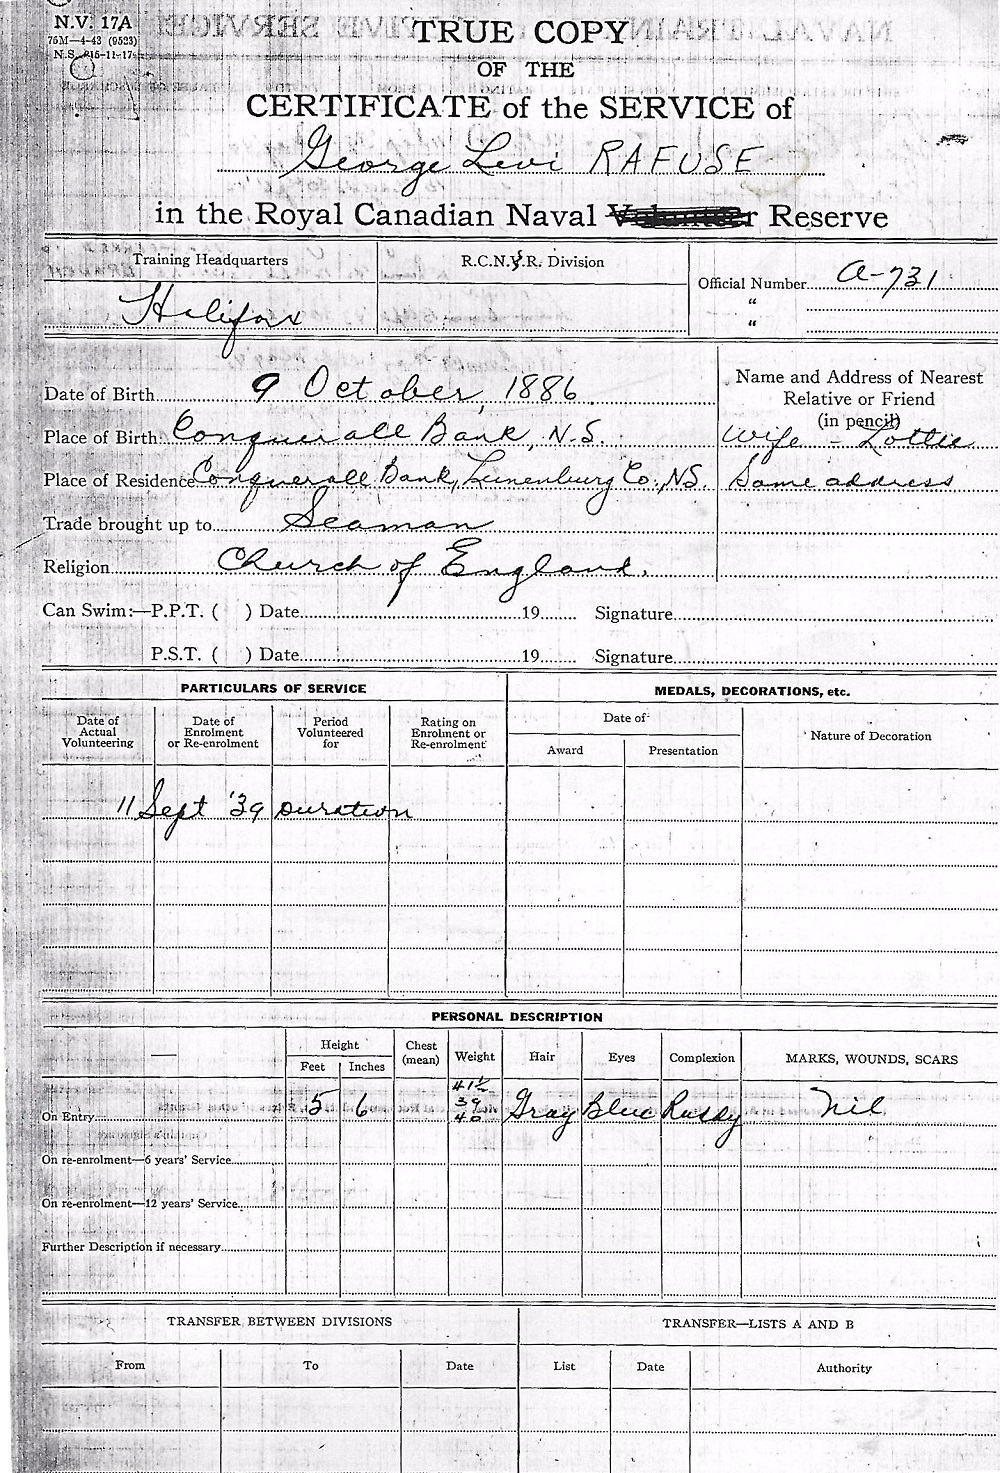 N.V. 17A
75M—4-43 (9523)
N.S. 815-11-17
TRUE COPY
OF THE
CERTIFICATE of the SERVICE of
George Levi RAFUSE
in the Royal Canadian Naval Volunteer Reserve
Training Headquarters
R.C.N.V.R. Division
Official Number A-731
"
"
Halifax
Date of Birth 9 October, 1886.
Name and Address of Nearest
Relative or Friend
(in pencil)
Place of Birth Conquerall Bank, N.S.
Wife - Lottie
Place of Residence Conquerall Bank, Lunenburg Co., N.S.
Same address
Trade brought up to Seaman
Religion Church of England.
Can Swim:—P.P.T. ( ) Date 19 Signature
P.S.T. ( ) Date 19 Signature
PARTICULARS OF SERVICE
MEDALS, DECORATIONS, etc.
Date of
Actual
Volunteering
Date of
Enrolment
or Re-enrolment
Period
Volunteered
for
Rating on
Enrolment or
Re-enrolment
Date of
Award
Presentation
Nature of Decoration
11 Sept '39 Duration
PERSONAL DESCRIPTION
Height
Feet
Inches
Chest
(mean)
Weight
Hair
Eyes
Complexion
MARKS, WOUNDS, SCARS
On Entry 5 6 41½ 39 40 Gray Blue Ruddy Nil
On re-enrolment—6 years' Service
On re-enrolment—12 years' Service
Further Description if necessary
TRANSFER BETWEEN DIVISIONS
TRANSFER—LISTS A AND B
From
To
Date
List
Date
Authority